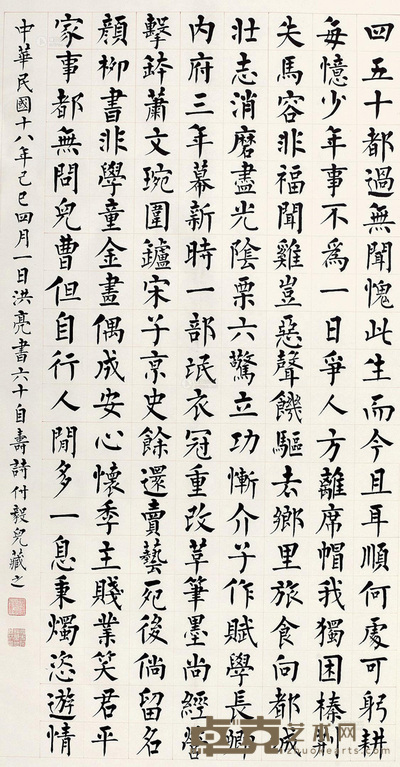 四五十都過無聞愧此生而今且耳順何處可躬耕
每憶少年事不為一日爭人方離席帽我獨困榛荆
失馬容非福聞雞豈惡聲饑驅去鄉里旅食向都成
壯志消磨盡光陰栗六驚立功慚介子作賦學長卿
內府三年幕新時一部氓衣冠重改草筆墨尚經營
擊鉢蕭文琬圍鑪宋子京史餘還賣藝死後倘留名
顏柳書非學童金畫偶成安心懷季主賤業笑君平
家事都無問兒曹但自行人間多一息秉燭恣遊情
中華民國十八年己巳四月一日洪亮書六十自壽詩付毅兒藏之
卓克艺术网
zhuokearts.com